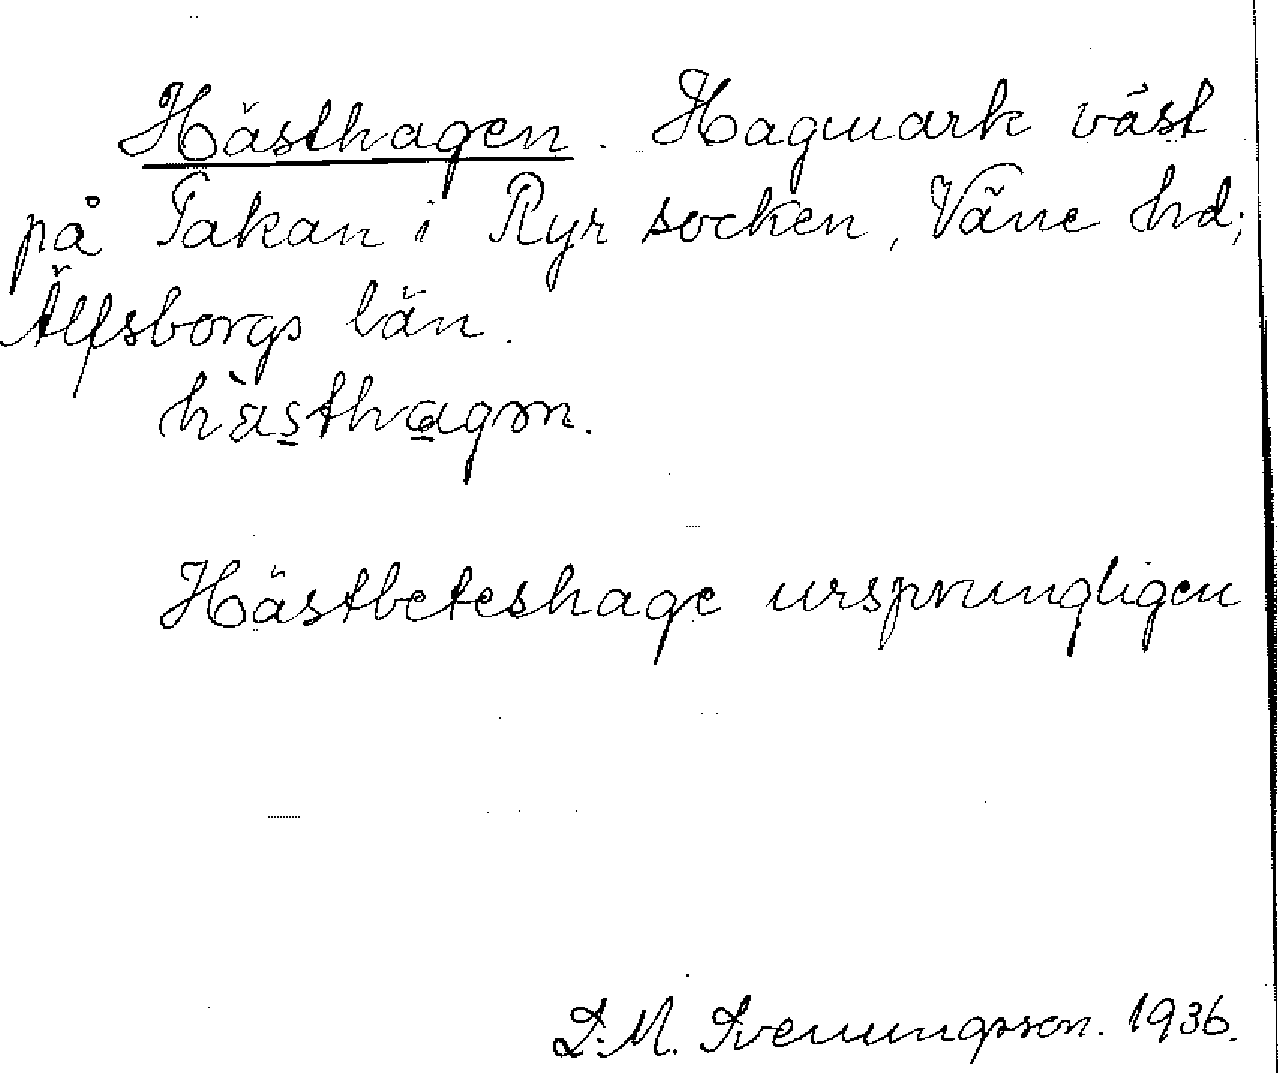 Hästhagen. Hagmark väst
på Takan i Ryr socken, Väne hd;
Älfsborgs län.
hàsthagən.
Hästbeteshage ursprungligen
D. M. Svenungsson. 1936.